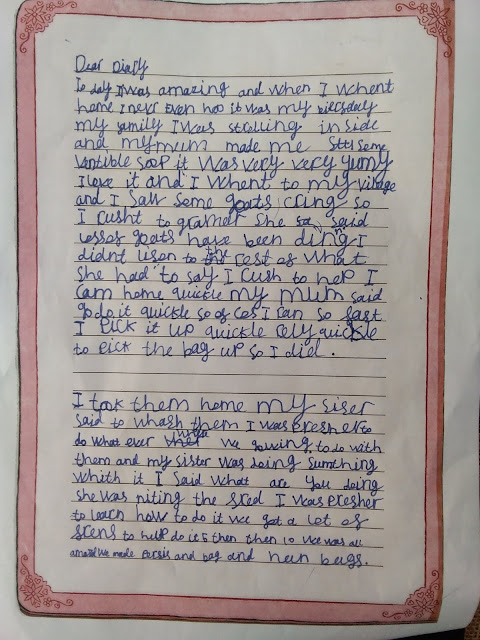 Dear Diary
To day I was amazing and when I whent
home I never even noo it was my birssday
my family I was stalling inside
and my mum made me some
vantible soop it was very very yumy
I love it and I whent to my village
and I saw some goats cring so
I rusht to gramer she said
lesser goats have been ding I
didnt lisen to the rest of what
she had to say I rush to hep I
cam home quickle my mum said
go do it quickle so of cos I ran so fast
I pick it up quickle rely quickle
to pick the bag up so I did.
I took them home my siser
said to whash them I was presher to
do what ever we gowing to do with
them and my sister was doing sumthing
whith it I said what are you doing
she was niting the sred I was presher
to learn how to do it we got a lot of
frens to help do it 5 then then 10 we was all
amazid we made persis and bag and hen bags.